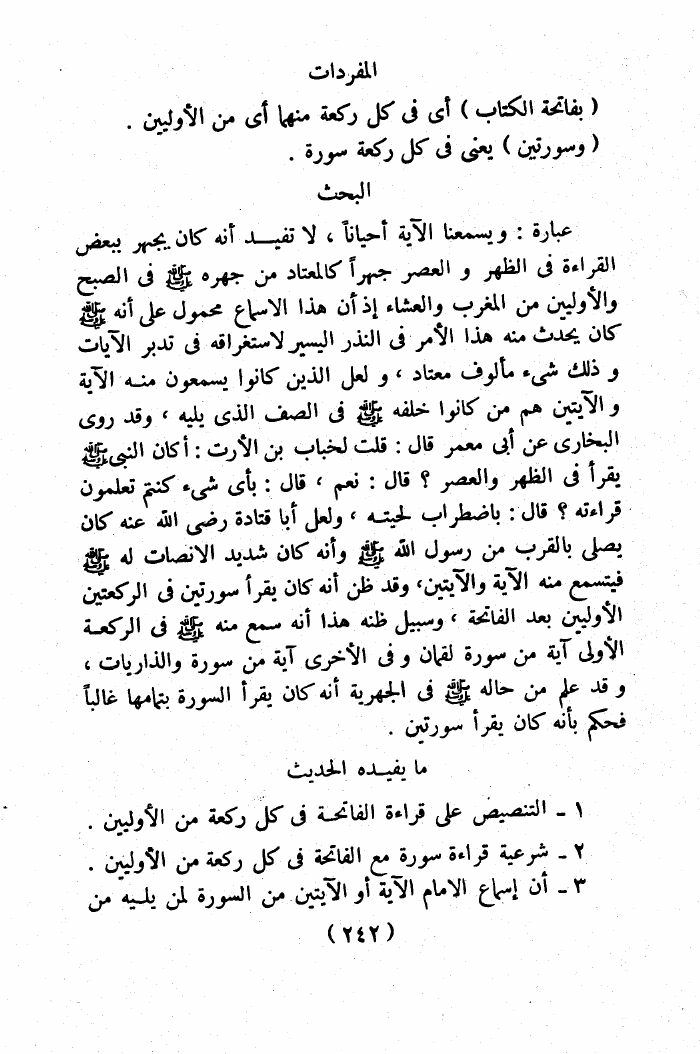 المفردات
( بفاتحة الكتاب ) أى فى كل ركعة منهما أى من الأوليين .
( وسورتين ) يعنى فى كل ركعة سورة .
البحث
عبارة : ويسمعنا الآية أحياناً ، لا تفيـــد أنه كان يجهر ببعض
القراءة فى الظهر و العصر جهراً كالمعتاد من جهره ﷺ فى الصبح
والأوليين من المغرب والعشاء إذ أن هذا الاسماع محمول على أنه ﷺ
كان يحدث منه هذا الأمر فى النذر اليسير لاستغراقه فى تدبر الآيات
و ذلك شىء مألوف معتاد ، و لعل الذين كانوا يسمعون منـه الآية
و الآيتين هم من كانوا خلفه ﷺ فى الصف الذى يليه ، وقد روى
البخارى عن أبى معمر قال : قلت لخباب بن الأرت : أكان النبى ﷺ
يقرأ فى الظهر والعصر ؟ قال : نعم ، قال : بأى شىء كنتم تعلمون
قراءته ؟ قال : باضطراب لحيتـه ، ولعل أبا قتادة رضى الله عنه كان
يصلى بالقرب من رسول الله ﷺ وأنه كان شديد الانصات له ﷺ
فيتسمع منه الآية والآيتين، وقد ظن أنه كان يقرأ سورتين فى الركعتين
الأوليين بعد الفاتحة ، وسبيل ظنه هذا أنه سمع منه ﷺ فى الركعـة
الأولى آية من سورة لقمان و فى الأخرى آية من سورة والذاريات ،
و قد علم من حاله ﷺ فى الجهرية أنه كان يقرأ السورة بتمامها غالباً
فحكم بأنه كان يقرأ سورتين .
ما يفيـده الحديث
١ ـ التنصيص على قراءة الفاتحـة فى كل ركعة من الأوليين .
٢ ـ شرعية قراءة سورة مع الفاتحة فى كل ركعة من الأوليين .
٣ ـ أن إسماع الامام الآية أو الآيتين من السورة لمن يلـيه من
( ٢٤٢ )